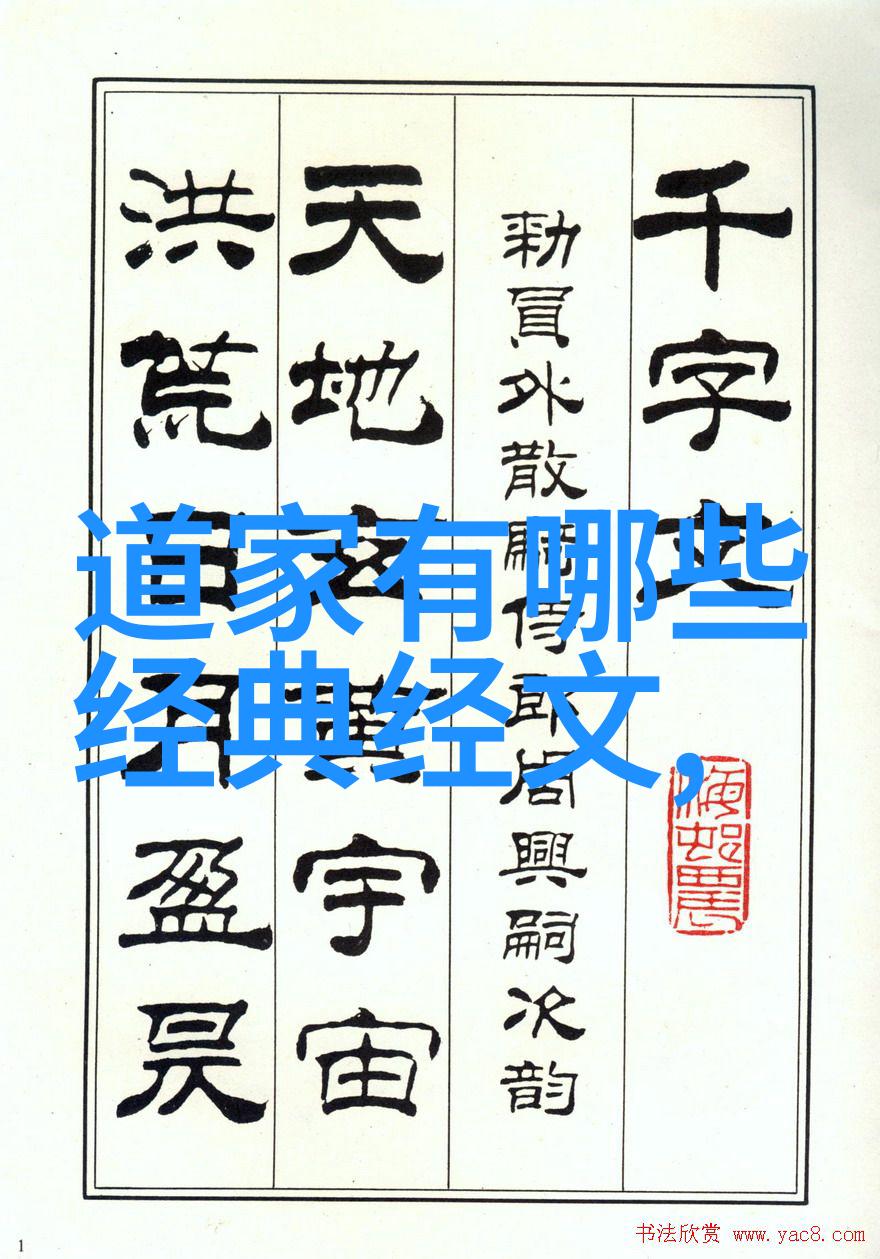 千字文
勑員外散騎侍郎周興嗣次韵
天地玄黃宇宙
洪荒日月盈昃
道家有哪些
经典经文,
1
书法欣赏 www.yac8.com